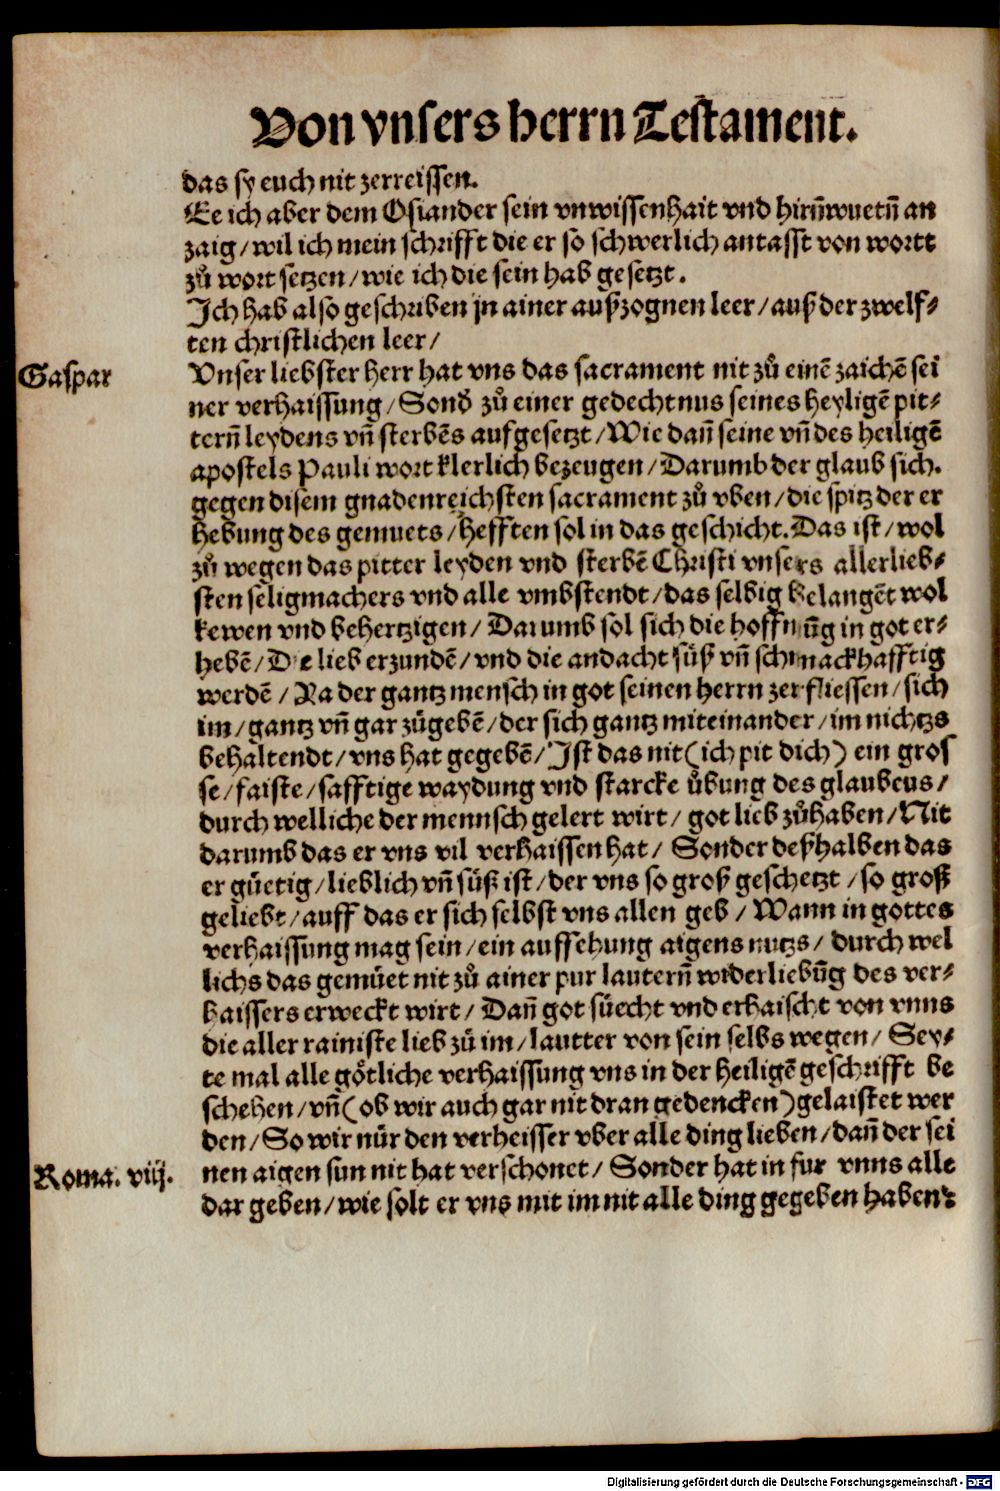 Von vnsers herrn Testament.
das sy euch nit zerreissen.
Ee ich aber dem Osiander sein vnwissenhait vnd hirñwuetñ an
zaig/ wil ich mein schrifft die er so schwerlich antasst von wortt
zů wort setzen/ wie ich die sein hab gesetzt.
Ich hab also geschriben jn ainer außzognen leer/ auß der zwelf-
ten christlichen leer/
Gaspar
Vnser liebster herr hat vns das sacrament nit zů einẽ zaichẽ sei
ner verhaissung/ Sond̕ zů einer gedechtnus seines heyligẽ pit-
terñ leydens vñ sterbẽs aufgesetzt/ Wie dañ seine vñ des heiligẽ
apostels Pauli wort klerlich bezeugen/ Darumb der glaub sich.
gegen disem gnadenreichsten sacrament zů vben/ die spitz der er
hebung des gemuets/ hefften sol in das geschicht. Das ist/ wol
zů wegen das pitter leyden vnd sterbẽ Christi vnsers allerlieb-
sten seligmachers vnd alle vmbstendt/ das selbig belangẽt wol
kewen vnd behertzigen/ Darumb sol sich die hoffnũg in got er-
hebẽ/ Die lieb erzundẽ/ vnd die andacht süß vñ schmackhafftig
werdẽ/ Ya der gantz mensch in got seinen herrn zerfliessen/ sich
im/ gantz vñ gar zůgebẽ/ der sich gantz miteinander/ im nichtzs
behaltendt/ vns hat gegebẽ/ Ist das nit (ich pit dich) ein gros
se/ faiste/ safftige waydung vnd starcke ůbung des glaubens/
durch welliche der mennsch gelert wirt/ got lieb zůhaben/ Nit
darumb das er vns vil verhaissen hat/ Sonder deßhalben das
er güetig/ lieblich vñ süß ist/ der vns so groß geschetzt/ so groß
geliebt/ auff das er sich selbst vns allen geb/ Wann in gottes
verhaissung mag sein/ ein auffsehung aigens nutzs/ durch wel
lichs das gemüet nit zů ainer pur lauterñ widerliebũg des ver-
haissers erweckt wirt/ Dañ got süecht vnd erhaischt von vnns
die aller rainiste lieb zů im/ lautter von sein selbs wegen/ Sey-
te mal alle götliche verhaissung vns in der heiligẽ geschrifft be
schehen/ vñ (ob wir auch gar nit dran gedencken) gelaistet wer
den/ So wir nür den verheisser vber alle ding lieben/ dañ der sei
Roma. viij.
nen aigen sun nit hat verschonet/ Sonder hat in fur vnns alle
dar geben/ wie solt er vns mit im nit alle ding gegeben haben?
Digitalisierung gefördert durch die Deutsche Forschungsgemeinschaft - DFG